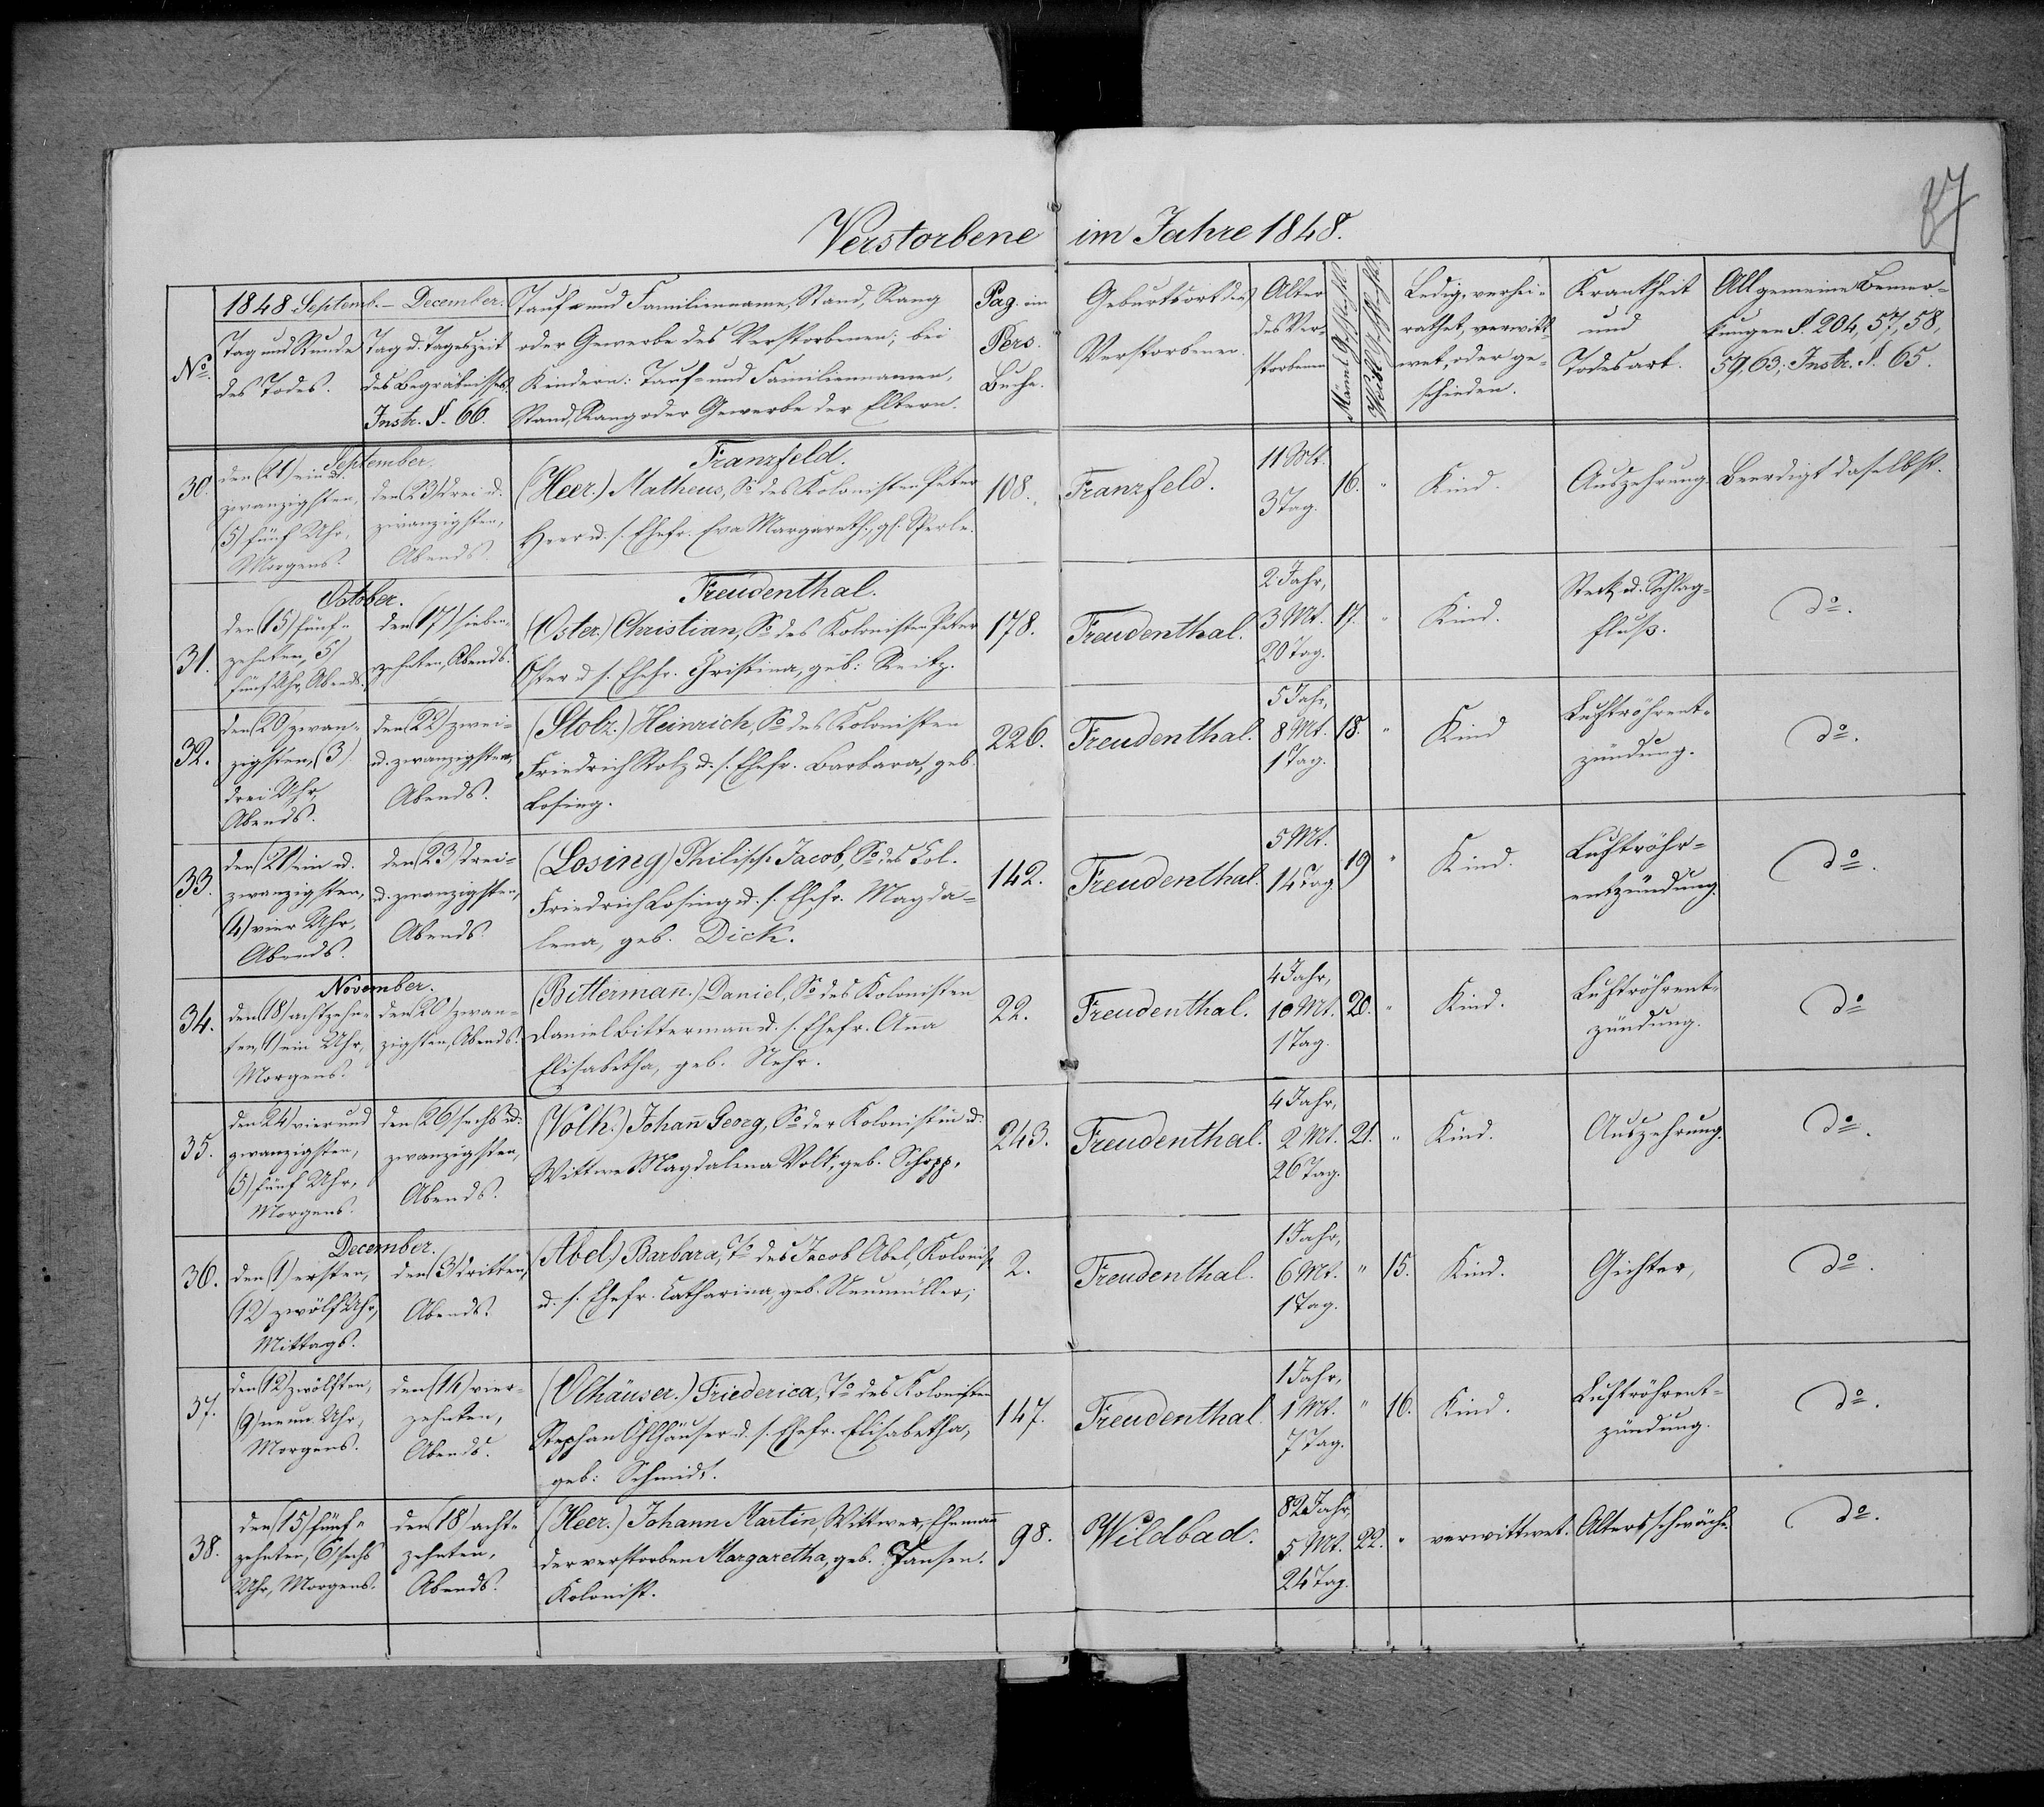 87
Verstorbene im Jahre 1848.
No.
1848 Septemb. – December.
Tag und Stunde
des Todes.
Tag d. Tageszeit
des Begräbnisses.
Instr. §. 66.
Tauf- und Familienname, Stand, Rang
oder Gewerbe des Verstorbenen; bei
Kindern: Tauf- und Familiennamen,
Stand, Rang oder Gewerbe der Eltern.
Pag. im
Pers.
Buche.
Geburtsort des
Verstorbenen.
Alter
des Ver-
storbenen
Mänl. Geschlechts.
Weibl. Geschlechts.
Ledig, verhei-
rathet, verwitt-
wet, oder ge-
schieden.
Krankheit
und
Todesart.
Allgemeine Bemer-
kungen §. 204, 57, 58,
59, 63; Instr. §. 65.
September.
Franzfeld.
30.
den (21) ein u.
zwanzigsten,
(5) fünf Uhr,
Morgens.
den (23) drei u.
zwanzigsten,
Abends.
(Heer.) Matheus, So des Kolonisten Peter
Heer u. s. Ehefr. Eva Margareth., gb. Sperle.
108.
Franzfeld.
11 Mt.
3 Tag.
16.
"
Kind.
Auszehrung
Beerdigt daselbst.
October.
Freudenthal.
31.
den (15) fünf-
zehnten, 5)
fünf Uhr, Abends.
den (17) sieben-
zehnten, Abends.
(Oster.) Christian, So des Kolonisten Peter
Oster u. s. Ehefr. Christina, geb: Reitz.
178.
Freudenthal.
2 Jahr,
3 Mt.
20 Tag.
17.
"
Kind.
Steck u. Schlag-
fluß.
do.
32.
den (20) zwan-
zigsten, (3)
drei Uhr,
Abends.
den (22) zwei-
u. zwanzigsten,
Abends.
(Stolz.) Heinrich, So des Kolonisten
Friedrich Stolz u. s. Ehefr. Barbara, geb
Losing.
226.
Freudenthal.
5 Jahr,
8 Mt.
1 Tag.
18.
"
Kind
Luftröhrent-
zündung.
do.
33.
den (21) ein u.
zwanzigsten,
(4) vier Uhr,
Abends.
den (23) drei-
u. zwanzigsten,
Abends.
(Losing) Philipp Jacob, So des Kol.
Friedrich Losing u. s. Ehefr. Magda-
lena, geb. Dick.
142.
Freudenthal.
5 Mt.
14 Tag.
19
"
Kind.
Luftröhr-
entzündung.
do.
November.
34.
den (18) achtzehn-
ten, (1) ein Uhr,
Morgens.
den (20) zwan-
zigsten, Abends.
(Bitterman̄.) Daniel, So des Kolonisten
Daniel Bitterman̄ u. s. Ehefr. An̄a
Elisabetha, geb. Nehr.
22.
Freudenthal.
4 Jahr,
10 Mt.
1 Tag.
20.
"
Kind.
Luftröhrent-
zündung.
do
35.
den 24) vier und
zwanzigsten,
(5) fünf Uhr,
Morgens.
den (26) sechs u.
zwanzigsten,
Abends.
(Volk.) Johan̄ Georg, So der Kolonistin u.
Wittwe Magdalena Volk, geb. Schopp.
243.
Freudenthal.
4 Jahr,
2 Mt.
26 Tag.
21.
"
Kind.
Auszehrung.
do.
December.
36.
den (1) ersten,
(12) zwölf Uhr,
Mittags.
den (3) dritten,
Abends.
(Abel) Barbara, To des Jacob Abel, Kolonist
u. s. Ehefr. Catharina, geb. Neumüller;
2.
Freudenthal.
1 Jahr,
6 Mt.
1 Tag.
"
15.
Kind.
Gichter,
do.
37.
den (12) zwölften,
(9) neun Uhr,
Morgens.
den (14) vier-
zehnten,
Abends.
(Olhäuser.) Friederica, To des Kolonisten
Stephan Ohlhäuser u. s. Ehefr. Elisabetha,
geb: Schmidt.
147.
Freudenthal.
1 Jahr,
1 Mt.
7 Tag.
"
16.
Kind.
Luftröhrent-
zündung.
do.
38.
den (15) fünf-
zehnten, 6) sechs
Uhr, Morgens.
den (18) acht-
zehnten,
Abends.
(Heer.) Johann Martin, Wittwer, Eheman̄
der verstorben Margaretha, geb. Jansen.
Kolonist.
98.
Wildbad.
82 Jahr,
5 Mt.
24 Tag.
22.
"
verwittwet.
Altersschwäche.
do.